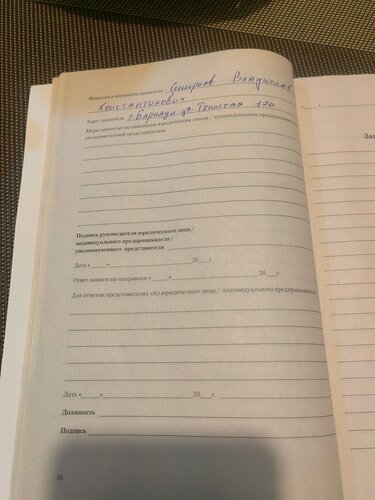 Фамилия и инициалы заявителя Смирнов Владислав
Константинович
Адрес заявителя г. Барнаул ул. Тенистая 120
Меры принятые по заявлению юридическим лицом / индивидуальным предпринимателем
уполномоченный представителем:
Подпись руководителя юридического лица /
индивидуального предпринимателя /
уполномоченного представителя
Дата «_____»____________________20___г.
Ответ заявителю направлен «_____»____________________20___г.
Для отметок представителя (-ей) юридического лица / индивидуального предпринимателя
Дата «_____»____________________20___г.
Должность
Подпись
16
За